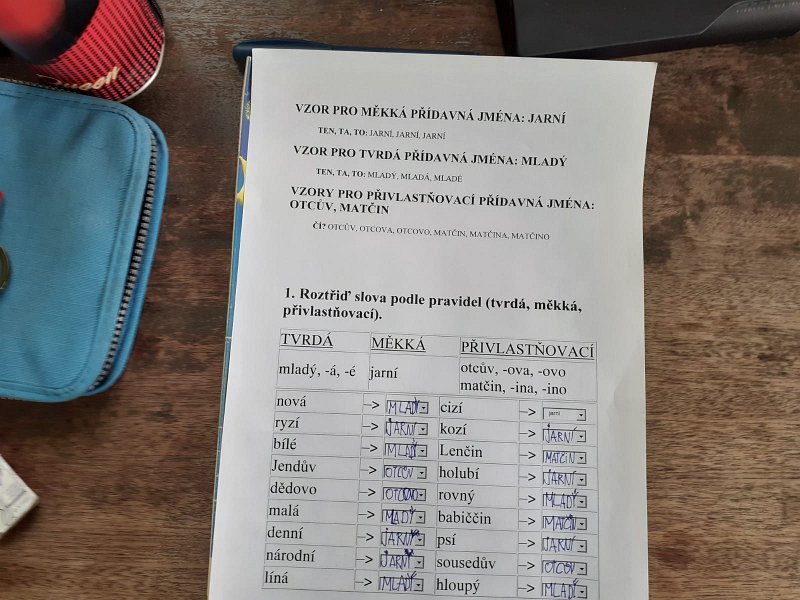 VZOR PRO MĚKKÁ PŘÍDAVNÁ JMÉNA: JARNÍ
TEN, TA, TO: JARNÍ, JARNÍ, JARNÍ
VZOR PRO TVRDÁ PŘÍDAVNÁ JMÉNA: MLADÝ
TEN, TA, TO: MLADÝ, MLADÁ, MLADÉ
VZORY PRO PŘIVLASTŇOVACÍ PŘÍDAVNÁ JMÉNA:
OTCŮV, MATČIN
ČÍ? OTCŮV, OTCOVA, OTCOVO, MATČIN, MATČINA, MATČINO
1. Roztřiď slova podle pravidel (tvrdá, měkká,
přivlastňovací).
TVRDÁ MĚKKÁ PŘIVLASTŇOVACÍ
mladý, -á, -é jarní otcův, -ova, -ovo
matčin, -ina, -ino
nová –> MLADÝ cizí –> jarní
ryzí –> JARNÍ kozí –> JARNÍ
bílé –> MLADÝ Lenčin –> MATČIN
Jendův –> OTCŮV holubí –> JARNÍ
dědovo –> rovný –> MLADÝ
malá –> MLADÝ babiččin –> MATČIN
denní –> JARNÍ psí –> JARNÍ
národní –> JARNÍ sousedův –> OTCŮV
líná –> MLADÝ hloupý –> MLADÝ